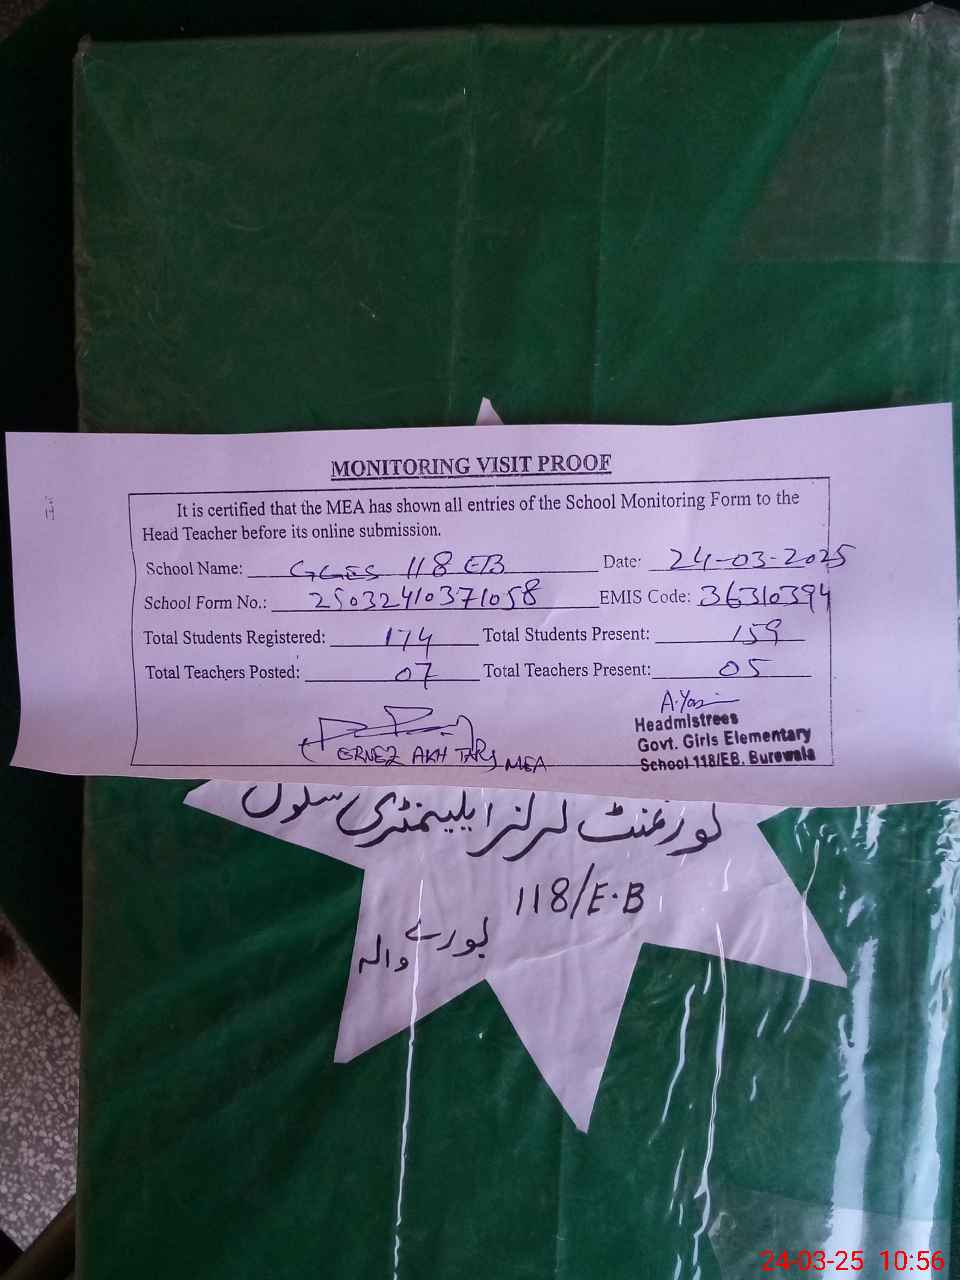 MONITORING VISIT PROOF
It is certified that the MEA has shown all entries of the School Monitoring Form to the
Head Teacher before its online submission.
School Name: GGES 118 EB Date: 24-03-2025
School Form No.: 25032410371058 EMIS Code: 36310394
Total Students Registered: 174 Total Students Present: 159
Total Teachers Posted: 07 Total Teachers Present: 05
AKHTAR, MEA
A.Yas
Headmistrees
Govt. Girls Elementary
School 118/EB. Burewala
گورنمنٹ گرلز ایلیمنٹری سکول
118/E.B
بورے والہ
24-03-25 10:56